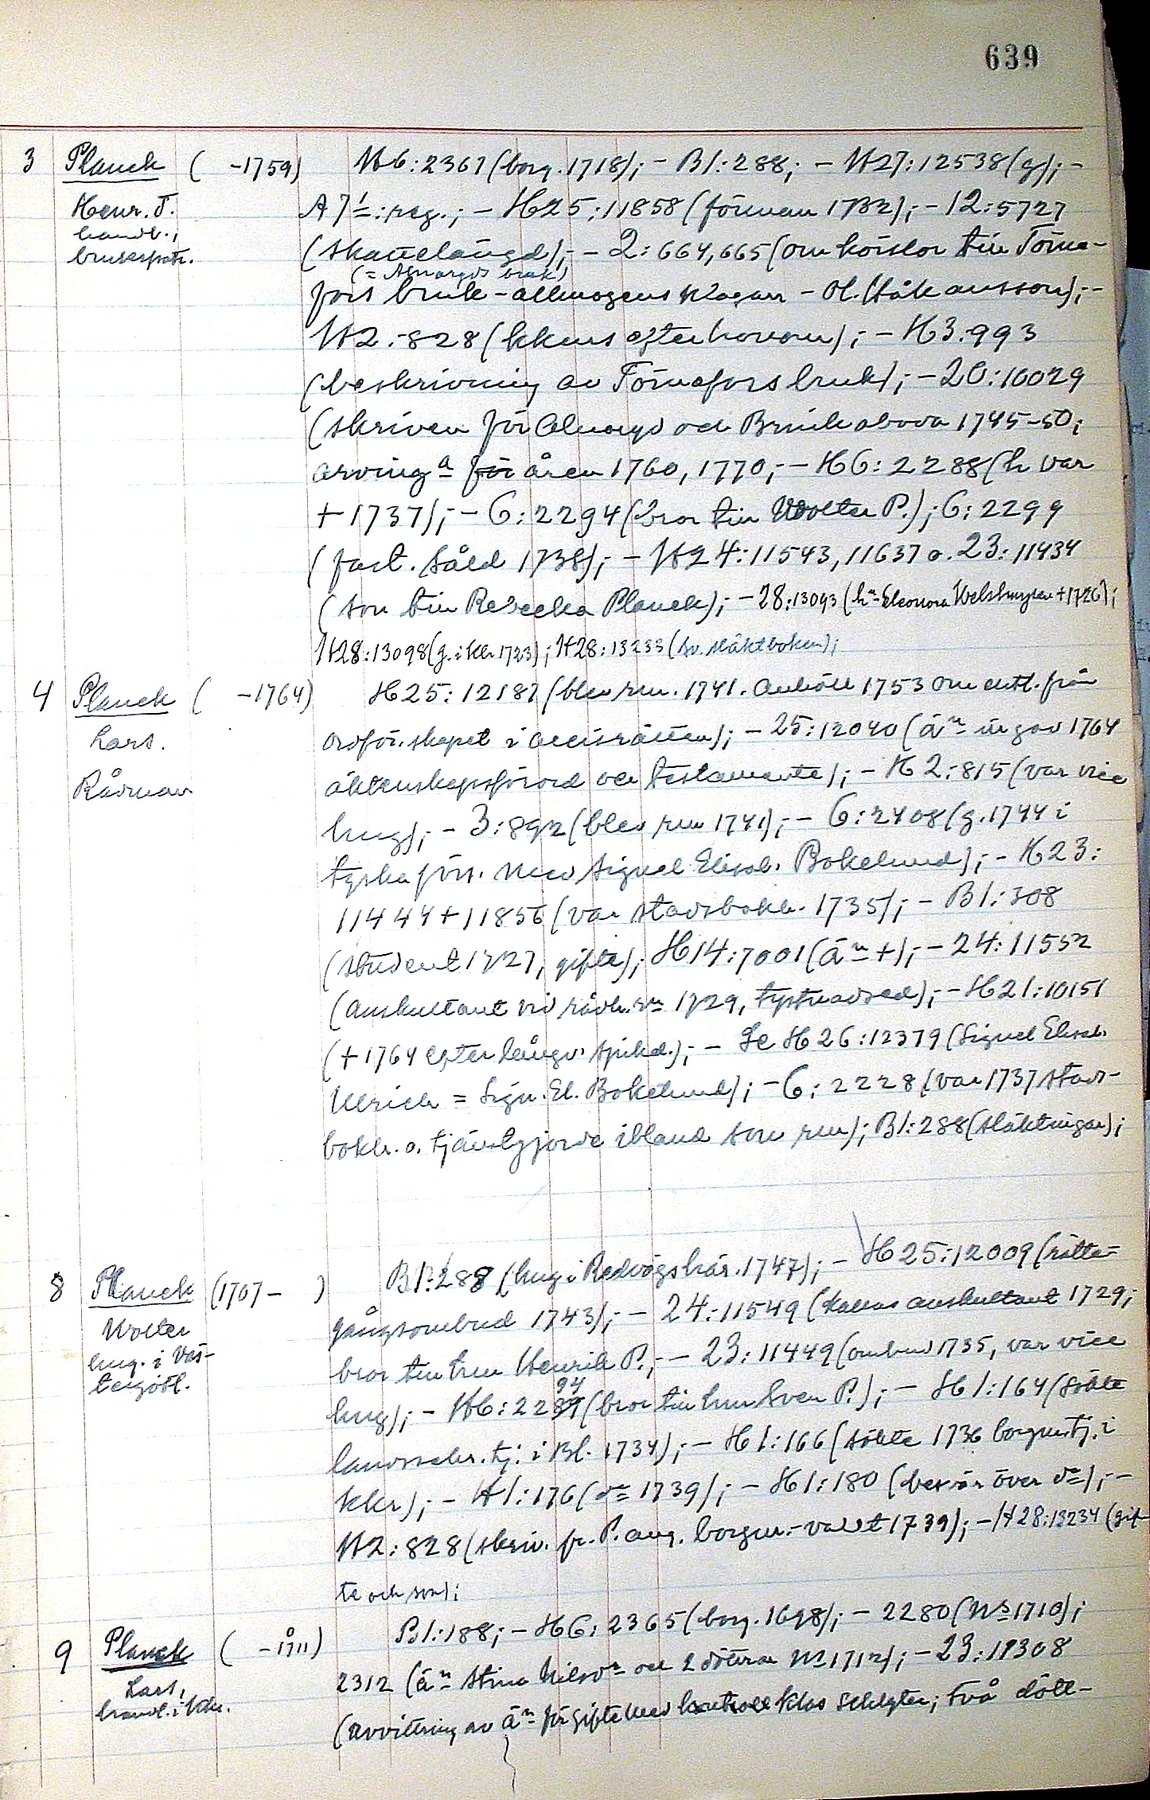 639
3 Planck ( -1759) H6:2367 (borg. 1718); - B1:288; - H27:12538 (g); -
Henr. T. A7 1/=: reg.; - H25:11858 (förman 1732); - 12:5727
handl.,
brukspatr. (skattelängd); - 2:664,665 (om körslor till Törna-
(= Alnaryds bruk)
fors bruk - allmogens klagan - Ol. Håkansson); -
H2:828 (kkurs efter honom); - H3:993
(beskrivning av Törnefors bruk); - 20:10029
(skriven för Alnaryd och Brunkaboda 1745-50;
arvinga för åren 1760, 1770; - H6:2288 (h var
+ 1737); - 6:2294 (bror till Wolter P.); 6:2299
(fast. såld 1738); - H24:11543, 11637 o. 23:11434
(son till Rebecka Planck); - 28:13093 (hn Eleonora +1726);
H28:13098 (g. i Kkr. 1723); H28:13233 (sv. släktboken);
4 Planck ( -1764) H25:12187 (blev rm. 1741. Anhöll 1753 om entl. från
Lars. ordför.skapet i accisrätten); - 25:12040 (än ingav 1764
Rådman äktenskapsförord och testamente); - H2:815 (var vice
hug); - 3:892 (blev rm 1741); - 6:2408 (g. 1744 i
tyska förs. med Signel Elisab. Bokelund); - H23:
11444 + 11856 (var stadsbokh. 1735); - B1:308
(student 1727, gifte); H14:7001 (än +); - 24:11552
(auskultant vid rådh.rn 1729, tystnadsed); - H21:10151
(+ 1764 efter långv. sjukd.); - Se H26:12379 (Signel Elisab.
Ulrich = Sign. El. Bokelund); - 6:2228 (var 1737 stads-
bokh. o. tjänstgjorde ibland som rm); B1:288 (släktingar);
8 Planck (1707 - ) B1:288 (hug i Redvägs här. 1747); - H25:12009 (rätte-
Wolter gångsombud 1743); - 24:11549 (kallas auskultant 1729;
hug. i Väs-
tergötl. bror till hm Henrik P.; - 23:11449 (ombud 1735, var vice
94
hug); - H6:2289 (bror till hm Sven P.); - H1:164 (sökte
landssekr. tj. i Bl. 1734); - H1:166 (sökte 1736 borgm.tj. i
kkr); - H1:176 (do 1739); - H1:180 (besvär över do); -
H2:828 (skriv. fr. P. ang. borgm.-valet 1739); - H28:13234 (gif-
te och son);
9 Planck ( - 1711) B1:188; - H6:2365 (borg. 1698); - 2280 (1710);
Lars, 2312 (än Stina Nilsdr och 2 döttrar 1712); - 23:11308
handl. i Kkr. (avvittring av än för gifte med Klas Schlyter; två dött-